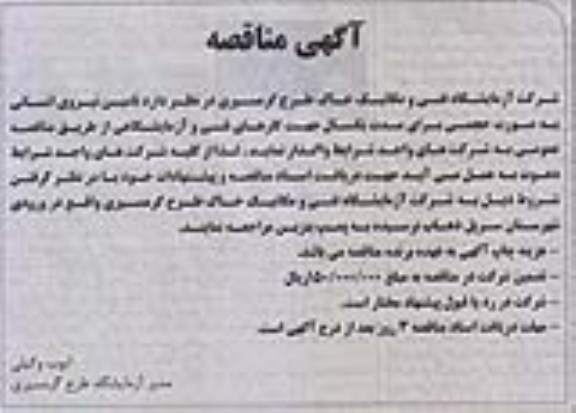 آگهی مناقصه
شرکت آزمایشگاه فنی و مکانیک خاک طرح گرمسیری در نظر دارد تامین نیروی انسانی
به صورت حجمی برای مدت یکسال جهت کارهای فنی و آزمایشگاهی از طریق مناقصه
عمومی به شرکت های واجد شرایط واگذار نماید. لذا از کلیه شرکت های واجد شرایط
دعوت به عمل می آید جهت دریافت اسناد مناقصه و پیشنهادات خود با در نظر گرفتن
شروط ذیل به شرکت آزمایشگاه فنی و مکانیک خاک طرح گرمسیری واقع در ورودی
شهرستان سرپل ذهاب نرسیده به پمپ بنزین مراجعه نمایند.
- هزینه چاپ آگهی به عهده برنده مناقصه می باشد.
- تضمین شرکت در مناقصه به مبلغ ۵۰/۰۰۰/۰۰۰ ریال
- شرکت در رد یا قبول پیشنهاد مختار است.
- مهلت دریافت اسناد مناقصه ۳ روز بعد از درج آگهی است.
ایوب وکیلی
مدیر آزمایشگاه طرح گرمسیری